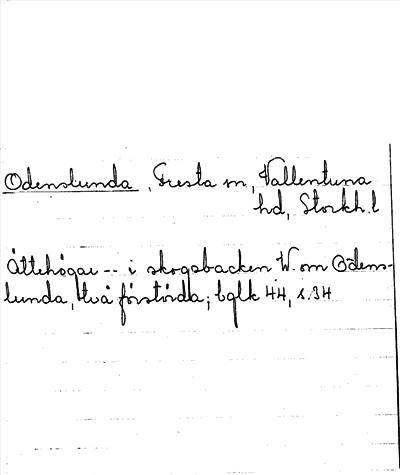 Odenslunda, Fresta sn, Vallentuna
hd, Stockh.l
Ättehögar -- i skogsbacken W. om Odens-
lunda, två förstörda; bglk 44, s. 34